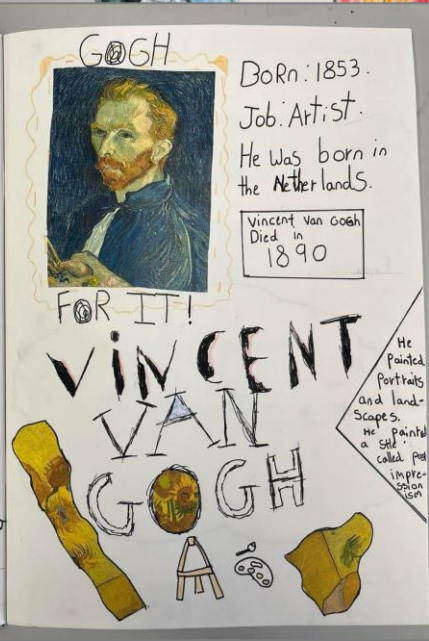 GOGH
FOR IT!
BORN: 1853.
Job: Artist.
He was born in
the Netherlands.
Vincent Van Gogh
Died in
1890
ViNCENT
VAN
GOGH
He
painted
portraits
and land-
scapes.
He painted
a stle
called post
impre-
ssion
ism